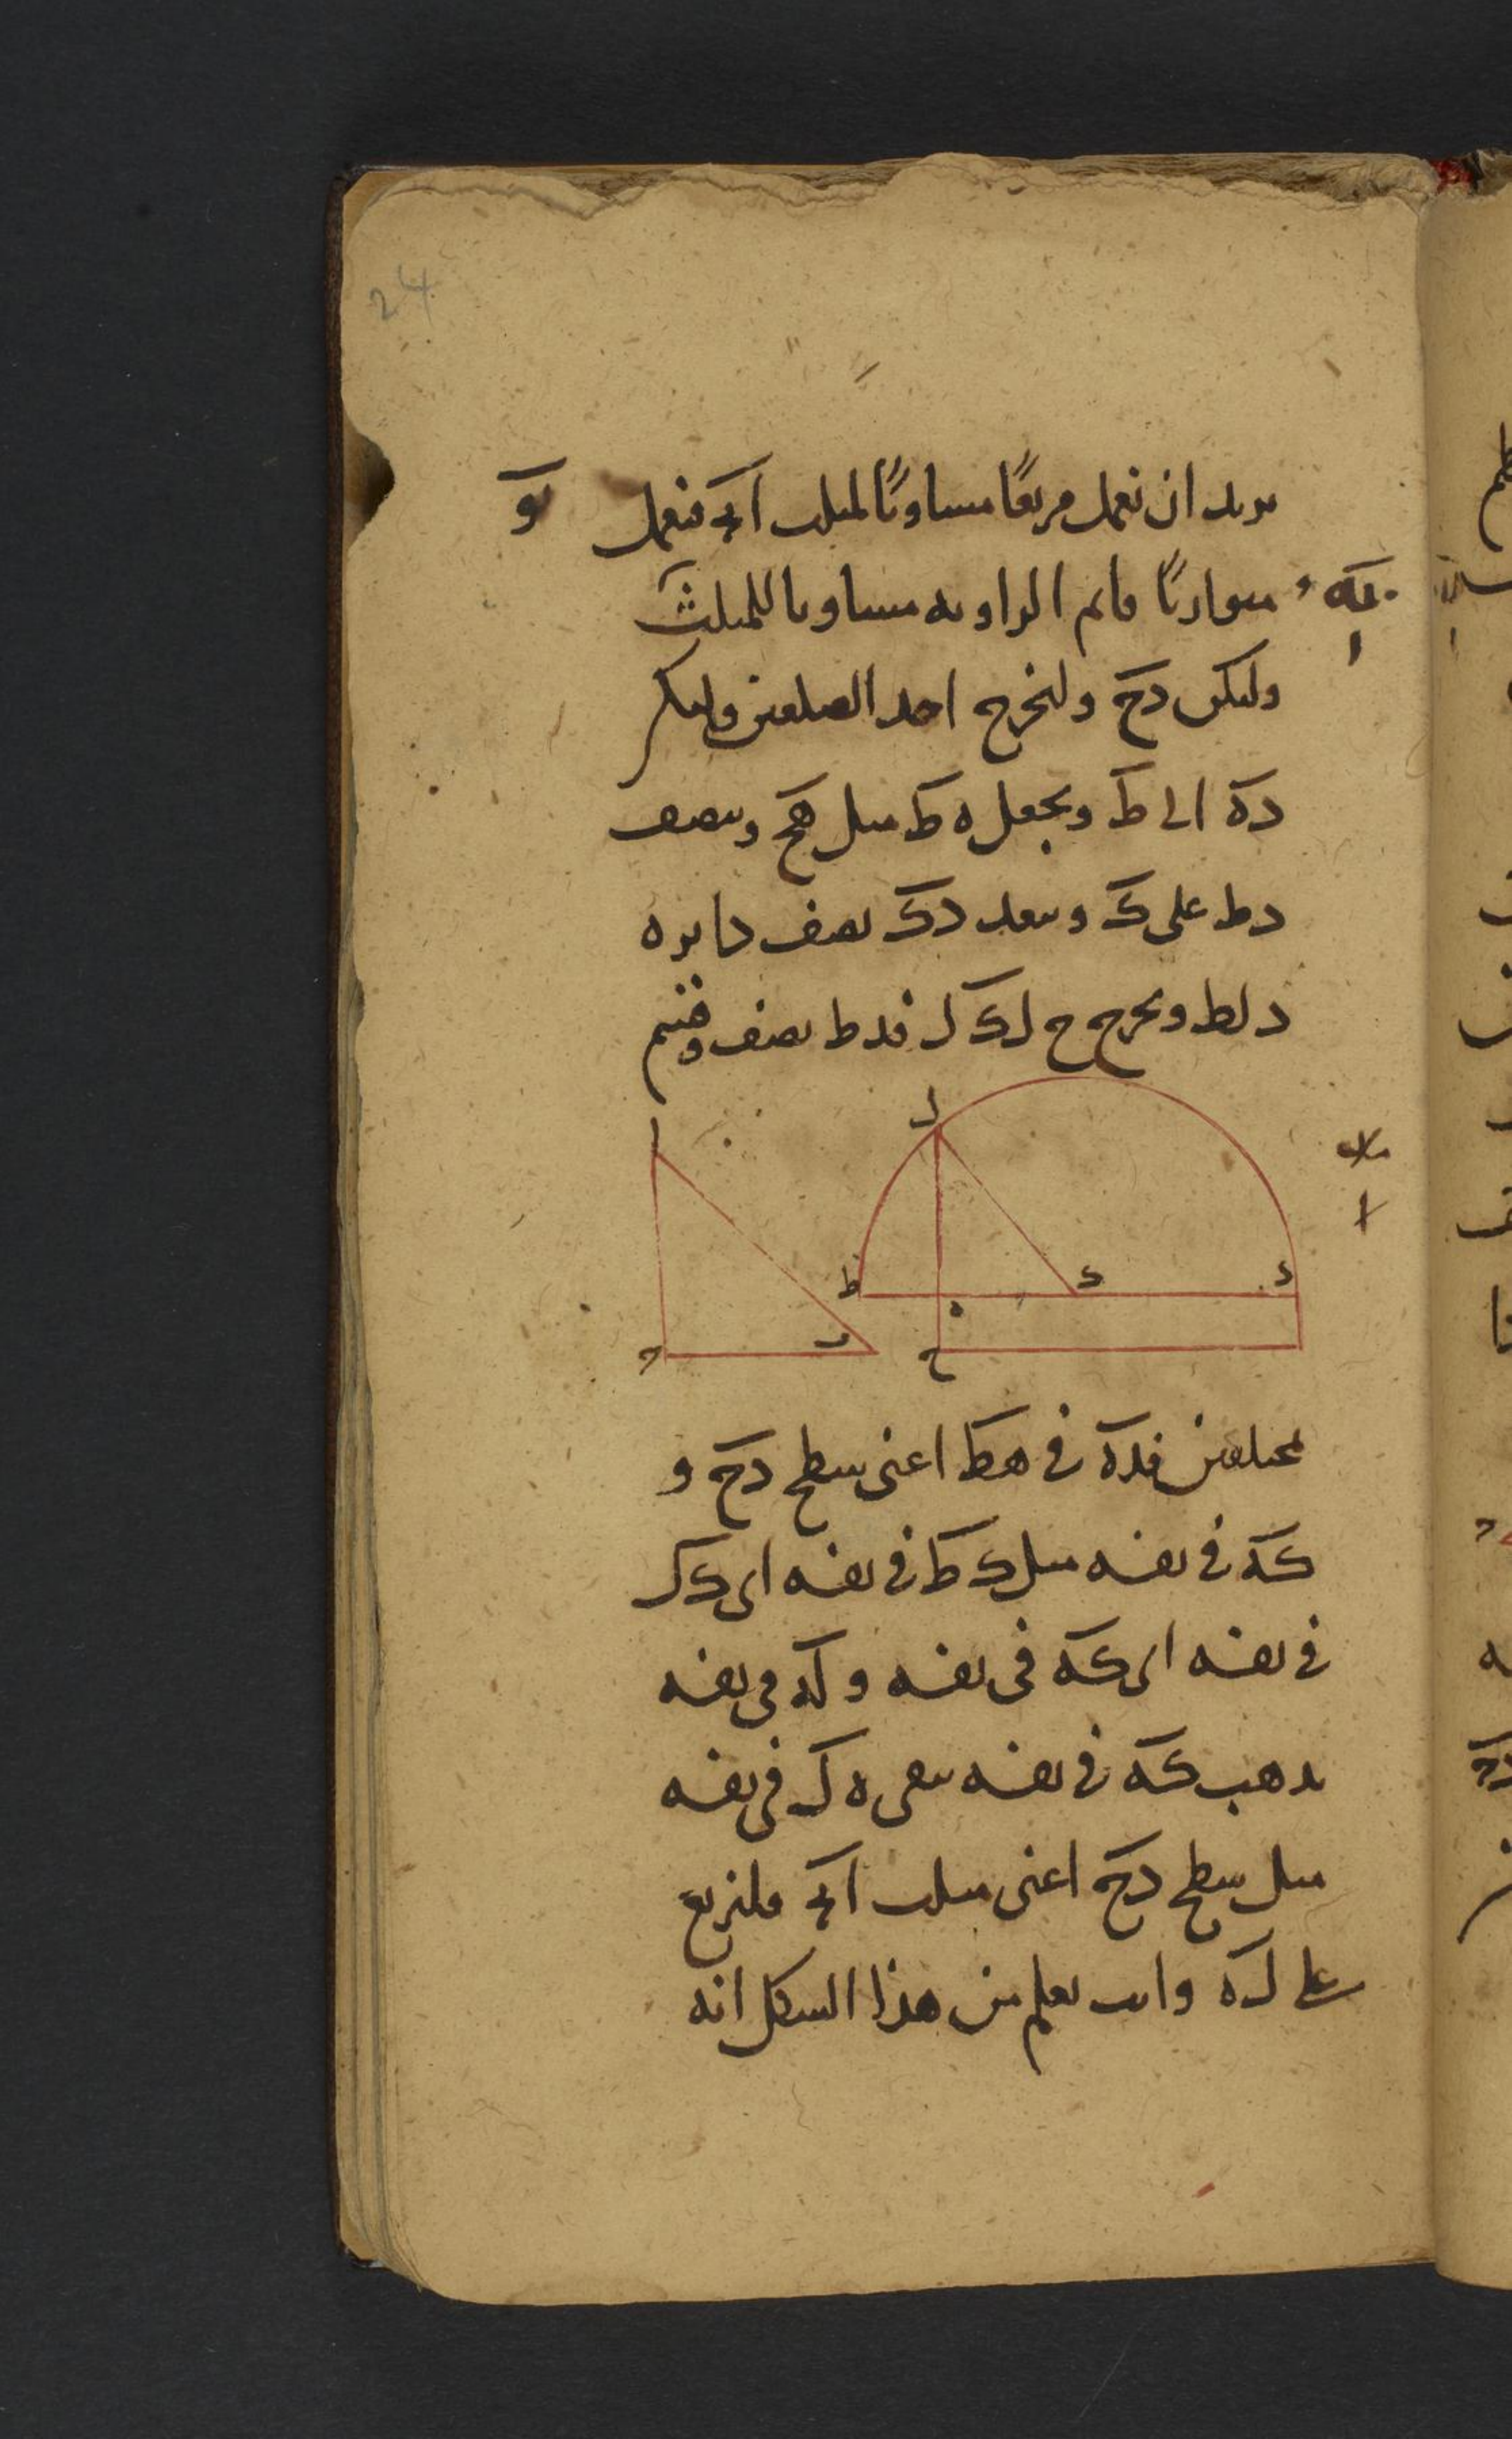 24
نريد ان نعمل مربعًا مساويًا لمثلث ابج فنعمل
متوازيًا قائم الزاوية مساويا للمثلث
وليكن دح ولنخرج احد الضلعين وليكن
ده الى ط ونجعل ه ط مثل هح وننصف
دط على ك وببعد دك نصف دايره
دلط ونخرج ح ل ك ل فدط نصف وقسم
ا ل ط ه ك د ج ب ح
بمختلفين فده فى هط اعنى سطح دح و
كه فى نفسه مثل ك ط فى نفسه اى ك ل
فى نفسه اى كه فى نفسه و له فى نفسه
يذهب كه فى نفسه يبقى ه ل فى نفسه
مثل سطح دح اعنى مثلث ابج فلنربع
على ل ه وانت تعلم من هذا الشكل انه